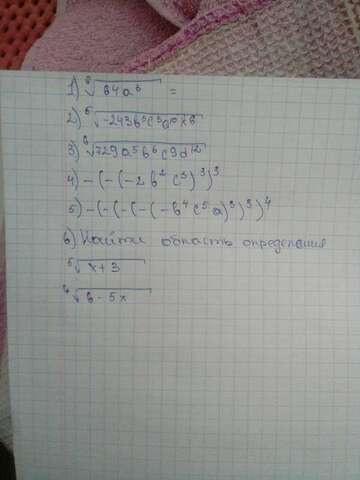 1) ⁶√64a⁶ =
2) ⁵√-243b⁵c⁵a⁰x⁸
3) ⁶√729a⁵b⁶c⁹d¹²
4) -(-(-2b²c⁵)³)³
5) -(-(-(-(-b⁴c⁵a)²)³)⁴
6) Найти область определения
⁵√x+3
⁶√6-5x